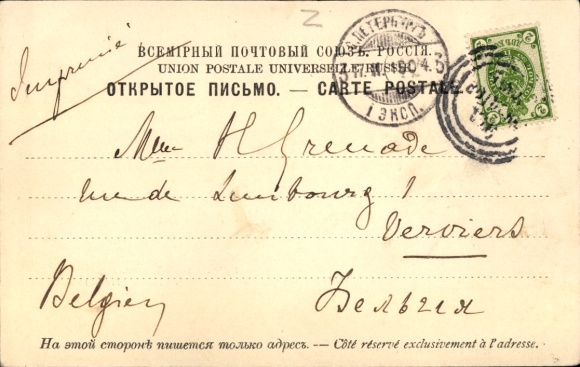 Imprimé
ВСЕМІРНЫЙ ПОЧТОВЫЙ СОЮЗЪ. РОССІЯ.
UNION POSTALE UNIVERSELLE. RUSSIE.
ОТКРЫТОЕ ПИСЬМО. — CARTE POSTALE.
С. ПЕТЕРБУРГЪ
1904
1 ЭКСП.
2
Mme H Grenade
rue de Limbourg 1
Verviers
Belgien Бельгія
На этой сторонѣ пишется только адресъ. — Côté réservé exclusivement à l'adresse.